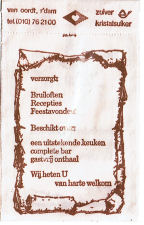 van oordt, r'dam
tel.(010) 76 21 00
zuiver
kristalsuiker
verzorgt:
Bruiloften
Recepties
Feestavonden
Beschikt over
een uitstekende keuken
complete bar
gastvrij onthaal
Wij heten U
van harte welkom